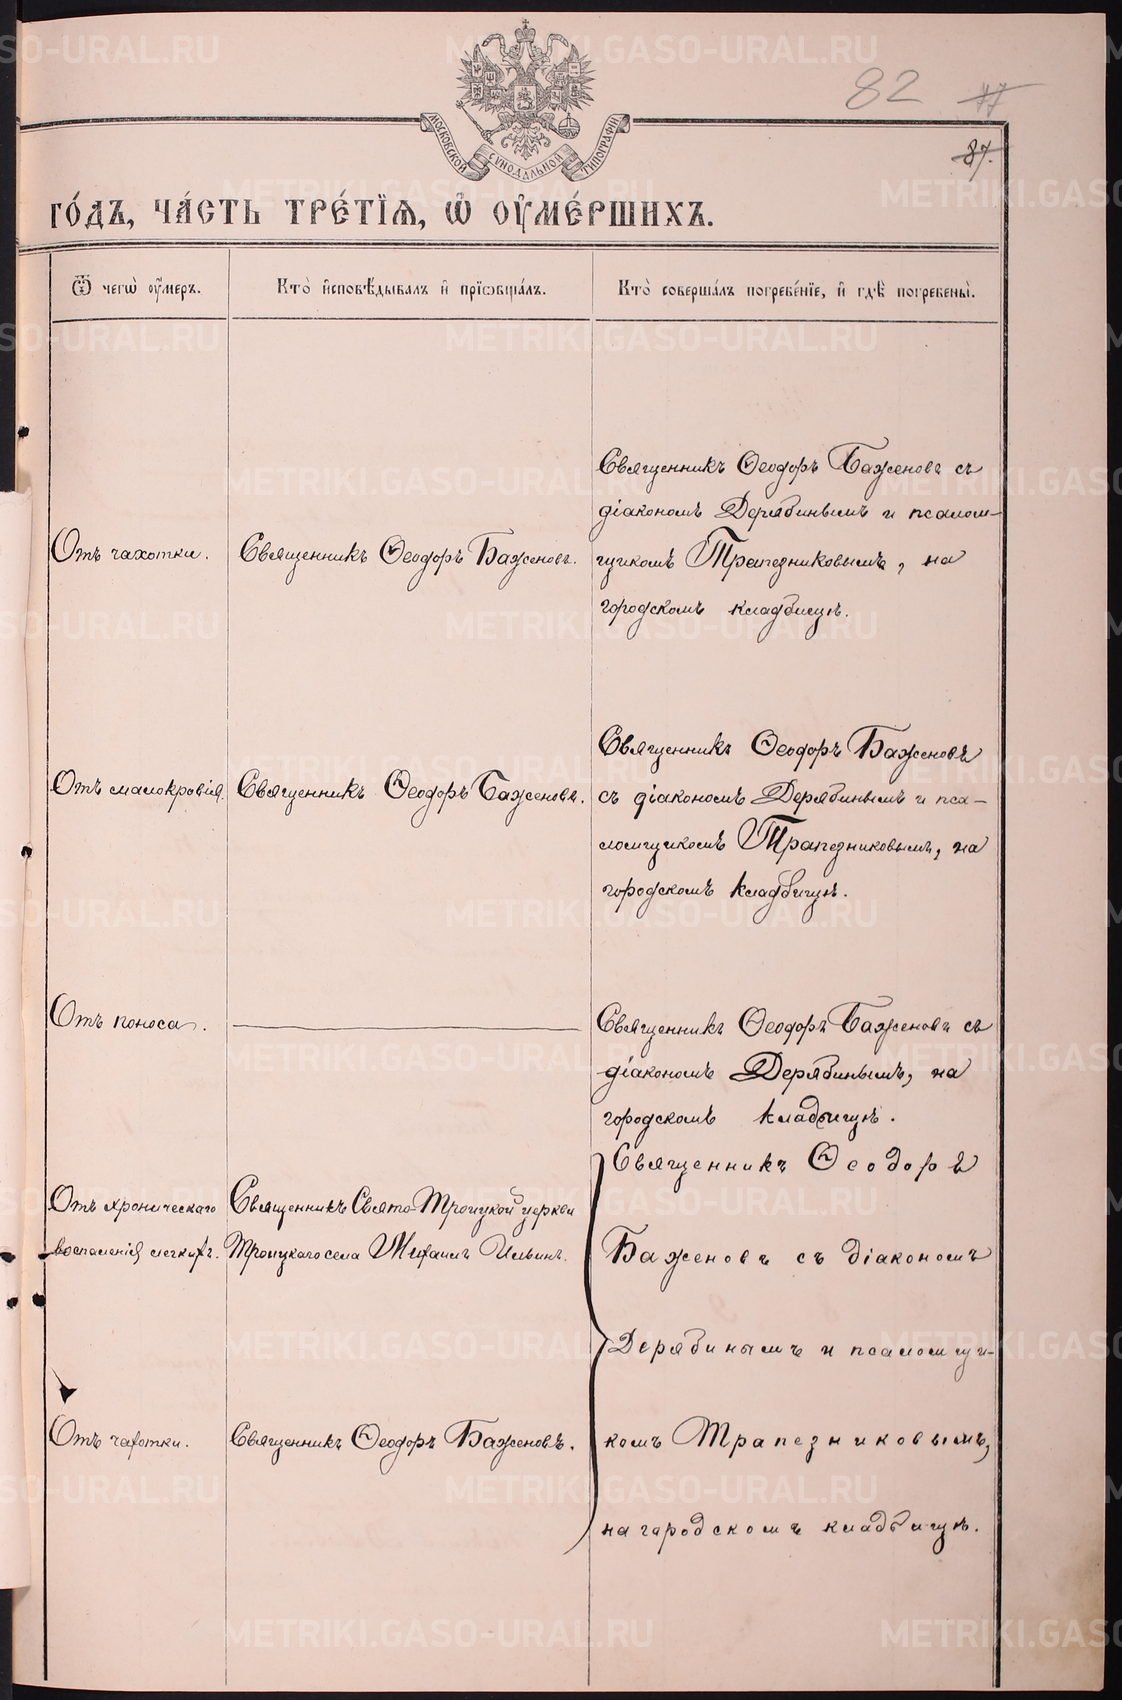 82 77
МОСКОВСКОЙ СѴНОДАЛЬНОЙ ТИПОГРАФІИ
87.
го́дъ, ча́сть тре́тїѧ, ѡ҆ ᲂу҆ме́ршихъ.
Ѿ чегѡ̀ ᲂу҆́меръ.
Кто̀ и҆сповѣ́дывалъ и҆ прїѡбща́лъ.
Кто̀ соверша́лъ погребе́нїе, и҆ гдѣ̀ погребены̀.
Отъ чахотки.
Священникъ Ѳеодоръ Баженовъ.
Священникъ Ѳеодоръ Баженовъ съ
діакономъ Дерябинымъ и псалом-
щикомъ Трапезниковымъ, на
городскомъ кладбищѣ.
Отъ малокровія.
Священникъ Ѳеодоръ Баженовъ.
Священникъ Ѳеодоръ Баженовъ
съ діакономъ Дерябинымъ и пса-
ломщикомъ Трапезниковымъ, на
городскомъ кладбищѣ.
Отъ поноса.
Священникъ Ѳеодоръ Баженовъ съ
діакономъ Дерябинымъ, на
городскомъ кладбищѣ.
Отъ хроническаго
воспаленія легкихъ.
Священникъ Свято-Троицкой церкви
Троицкаго села Михаилъ Ильинъ.
Отъ чахотки.
Священникъ Ѳеодоръ Баженовъ.
Священникъ Ѳеодоръ
Баженовъ съ діакономъ
Дерябинымъ и псаломщи-
комъ Трапезниковымъ,
на городскомъ кладбищѣ.
METRIKI.GASO-URAL.RU